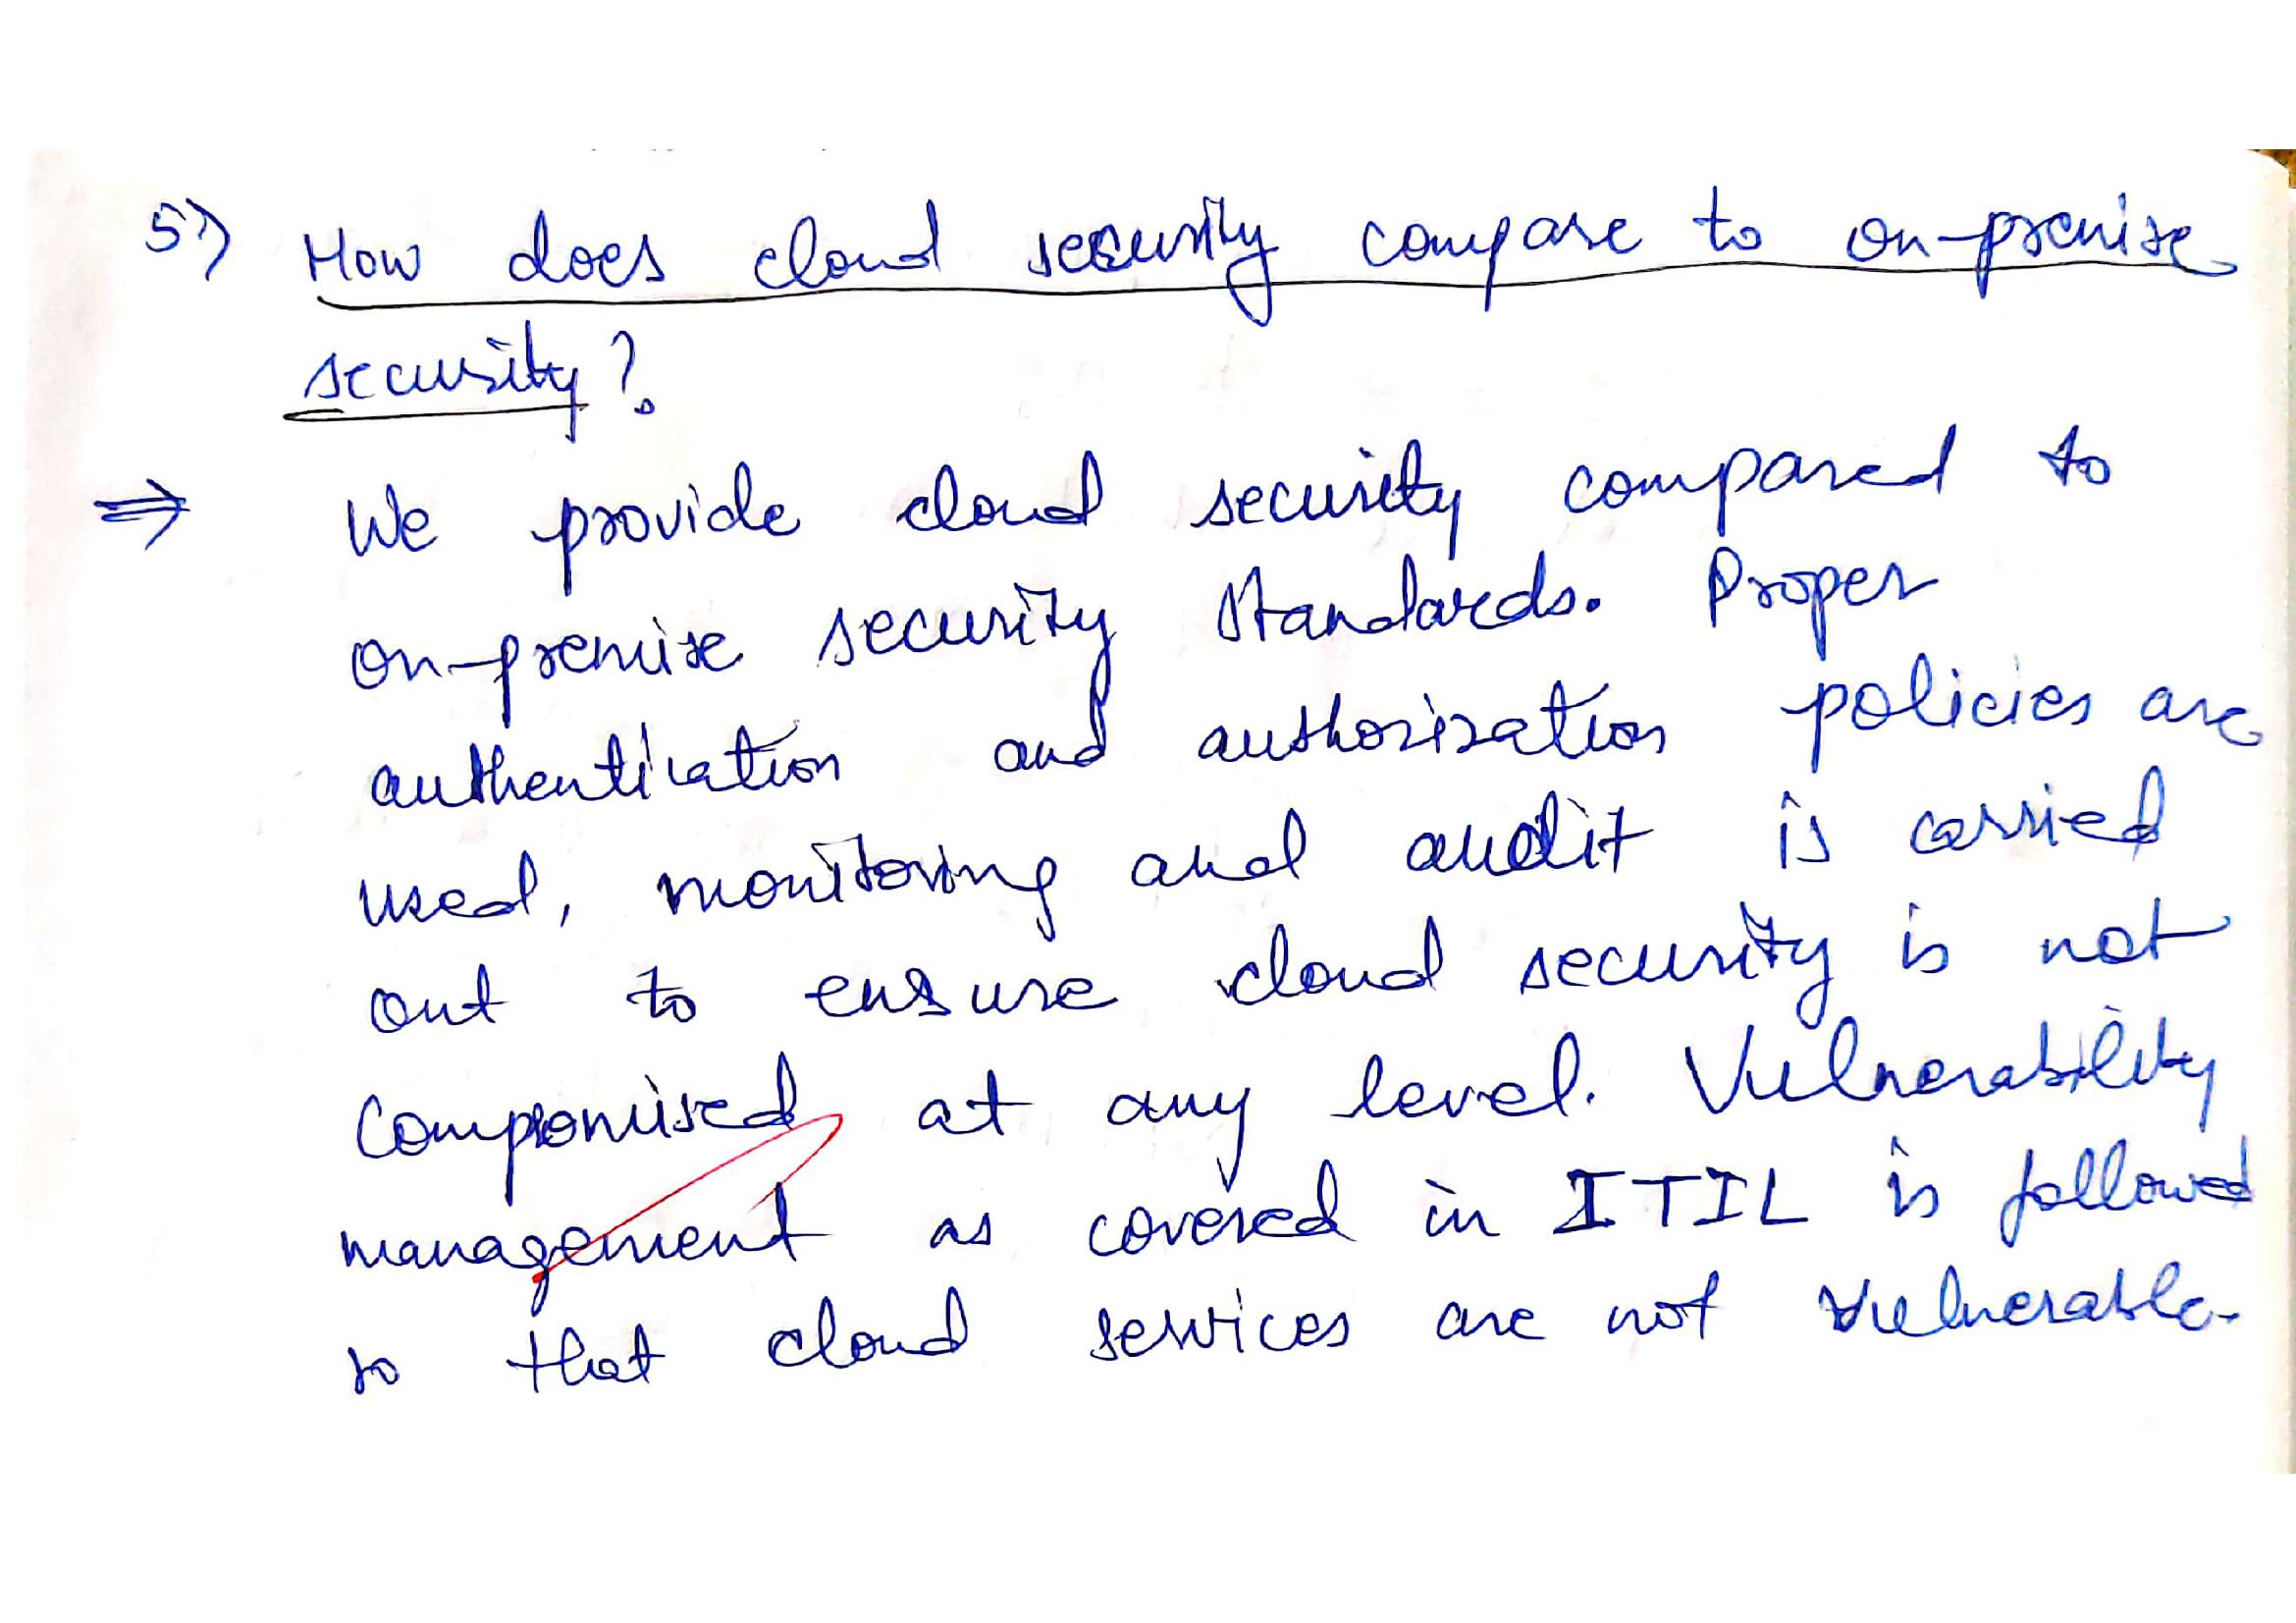 5) How does cloud security compare to on-premise
security?
⇒ We provide cloud security compared to
on-premise security standards. Proper
authentication and authorisation policies are
used, monitoring and audit is carried
out to ensure cloud security is not
compromised at any level. Vulnerability
management as covered in ITIL is followed
so that cloud services are not vulnerable.